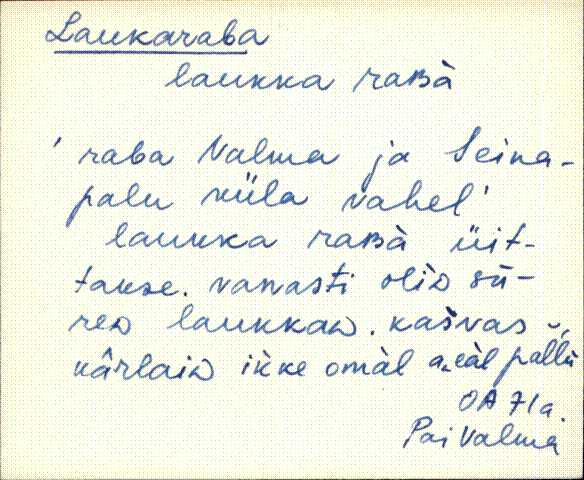 Laukaraba
laukka raʙà
'raba Nalma ja Seina-
palu küla vahel'
laukka raʙà üit-
takse. vanasti oliᴅ sū-
reᴅ laukkaᴅ. kašvas
kârlaiᴅ ikke omàl a‿eàl pallù
OA 71a.
Pai Valma